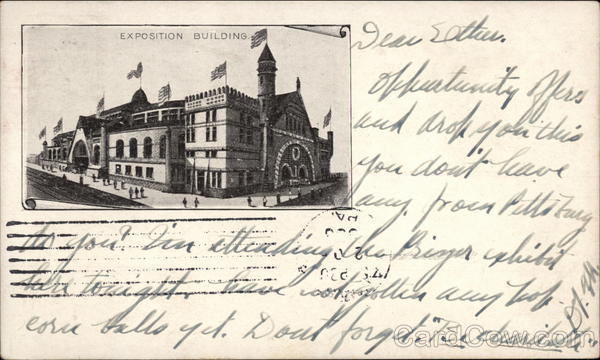 EXPOSITION BUILDING.
Dear Esther.
Opportunity offers
and drop you this
you don't have
any from Pittsburg
do you? I'm attending the exhibit
here tonight. have not gotten any pop
corn balls yet. Don't forget
CardCow.com